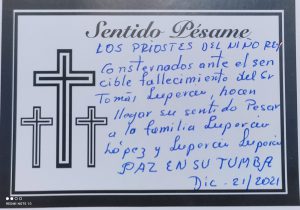 Sentido Pésame
LOS PRIOSTES DEL NIÑO REY
Consternados ante el sen
cible fallecimiento del Sr
Tomás Lupercu, hacen
llegar su sentido Pesar
a la familia Lupercu
López y Lupercu Lupercu
PAZ EN SU TUMBA
Dic. 21/2021
REDMI NOTE 10